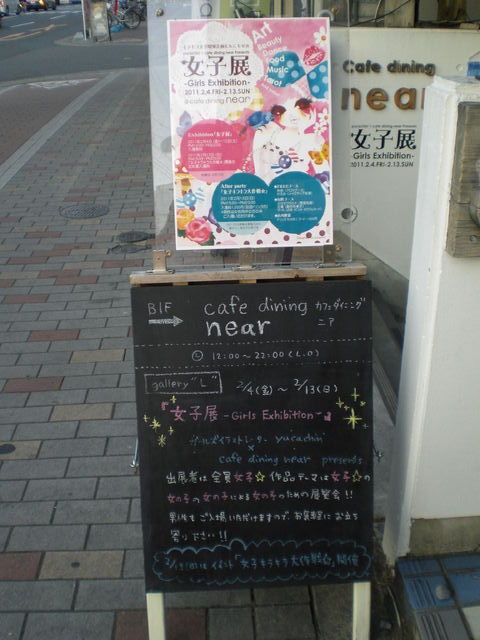 女子展
-Girls Exhibition-
2011.2.4.FRI-2.13.SUN
@cafe dining near
Art
Beauty
Dance
Food
Music
Exhibition「女子展」
After party
「女子キラキラ大作戦☆」
Cafe dining
near
女子展
-Girls Exhibition-
2011.2.4.FRI-2.13.SUN
B1F
cafe dining カフェダイニング
near ニア
12:00～22:00(L.O)
gallery "L" 2/4(金)～2/13(日)
『女子展 -Girls Exhibition-』
ガールズイラストレーター yucachin'
×
cafe dining near presents
出展者は全員女子☆ 作品テーマは女子☆の
女の子の女の子による女の子のための展覧会!!
男性もご入場いただけますので、お気軽にお立ち
寄り下さい!!
イベント「女子キラキラ大作戦☆」開催